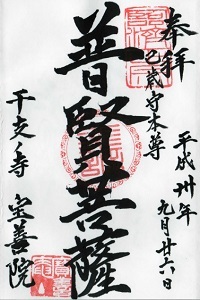 奉拝
辰巳歳守本尊
平成卅年
九月廿六日
普賢菩薩
干支ノ寺
宝善院